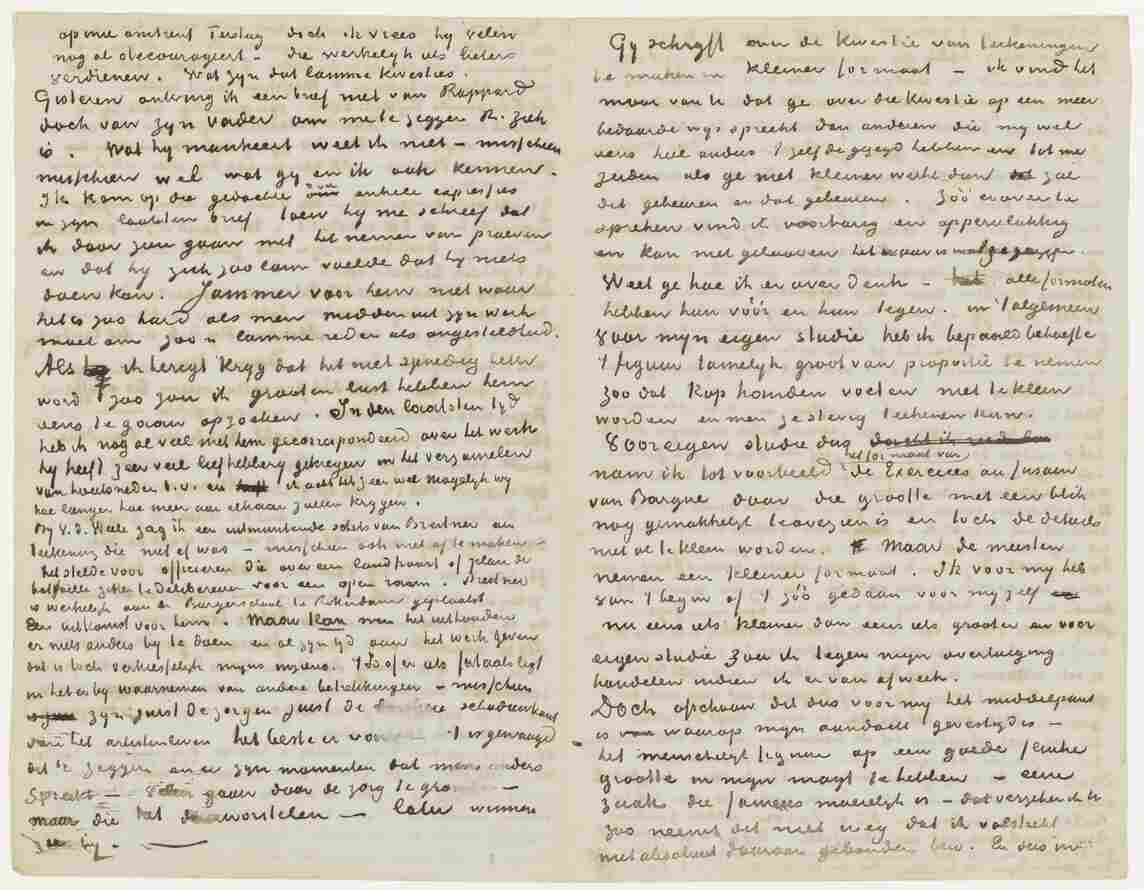 op me omtrent Tersteeg doch ik vrees hy velen
nogal decourageert – die werkelyk iets beters
verdienen. Wat zyn dat lamme kwesties.
Gisteren ontving ik een brief niet van Rappard
doch van zyn vader om me te zeggen R. ziek
is. Wat hy mankeert weet ik niet – misschien
misschien wel wat gy en ik ook kennen.
Ik kom op die gedachte door enkele expressies
in zyn laatsten brief toen hy me schreef dat
ik door zou gaan met het nemen van proeven
en dat hy zich zoo lam voelde dat hy niets
doen kan. Jammer voor hem niet waar
het is zoo hard als men midden uit zyn werk
moet om zoo'n lamme reden als ongesteldheid.
Als ik berigt kryg dat het niet spoedig beter
word zoo zou ik grooten lust hebben hem
eens te gaan opzoeken. In den laatsten tyd
heb ik nog al veel met hem gecorrespondeerd over het werk
hy heeft zeer veel liefhebbery gekregen in het verzamelen
van houtsneden b.v. en ik acht het zeer wel mogelyk wy
hoe langer hoe meer aan elkaar zullen krygen.
By v.d. Weele zag ik een uitmuntende schets van Breitner een
teekening die niet af was – misschien ook niet af te maken –
het stelde voor officieren die over een landkaart of plan de
bataille zitten te delibereeren voor een open raam. Breitner
is werkelyk aan de Burgerschool te Rotterdam geplaatst
Een uitkomst voor hem. Maar kan men het uithouden
er niets anders by te doen en al zyn tyd aan het werk geven
dat is toch verkieselyk myns inziens. 't Is of er iets fataals ligt
in het er by waarnemen van andere betrekkingen – misschien
zyn juist de zorgen juist de donkere schaduwkant
van het artistenleven het beste er van 't is gewaagd
dit te zeggen en er zyn momenten dat men anders
spreekt – Velen gaan door de zorg te gronde –
maar die dat doorworstelen – later winnen
ze er by.

Gy schryft over de kwestie van teekeningen
te maken in kleiner formaat – ik vind het
mooi van U dat ge over die kwestie op een meer
bedaarde wys spreekt dan anderen die my wel
eens heel anders 't zelfde gezegd hebben en tot me
zeiden als ge niet kleiner werkt dan zal
dit gebeuren en dat gebeuren. Zóó er over te
spreken vind ik voorbarig en oppervlakkig
en kan niet gelooven het waar is
Weet ge hoe ik er over denk – alle formaten
hebben hun vóór en hun tegen. in 't algemeen
Voor myn eigen studie heb ik bepaald behoefte
't figuur tamelyk groot van proportie te nemen
zoodat kop handen voeten niet te klein
worden en men ze stevig teekenen kan.
Voor eigen studie dus
nam ik tot voorbeeld het formaat van de Exercices au fusain
van Bargue daar die grootte met een blik
nog gemakkelyk te overzien is en toch de details
niet al te klein worden. Maar de meesten
nemen een kleiner formaat. Ik voor my heb
van 't begin af 't zóó gedaan voor my zelf
nu eens iets kleiner dan eens iets grooter en voor
eigen studie zou ik tegen myn overtuiging
handelen indien ik er van afweek.
Doch ofschoon dit dus voor my het middelpunt
is waarop myn aandacht gevestigd is –
het menschelyk figuur op een goede flinke
grootte in myn magt te hebben – eene
zaak die moeielyk is – dat verzeker ik U
zoo neemt dit niet weg dat ik volstrekt
niet absoluut daaraan gebonden ben. En dus in